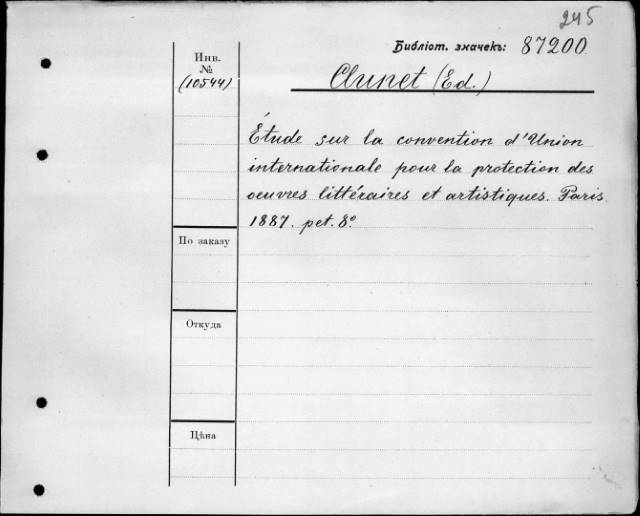 245
Библіот. значекъ: 87200
Инв.
№
(10544)
Clunet (Ed.)
Étude sur la convention d'Union
internationale pour la protection des
oeuvres littéraires et artistiques. Paris.
1887. pet. 8º
По заказу
Откуда
Цѣна